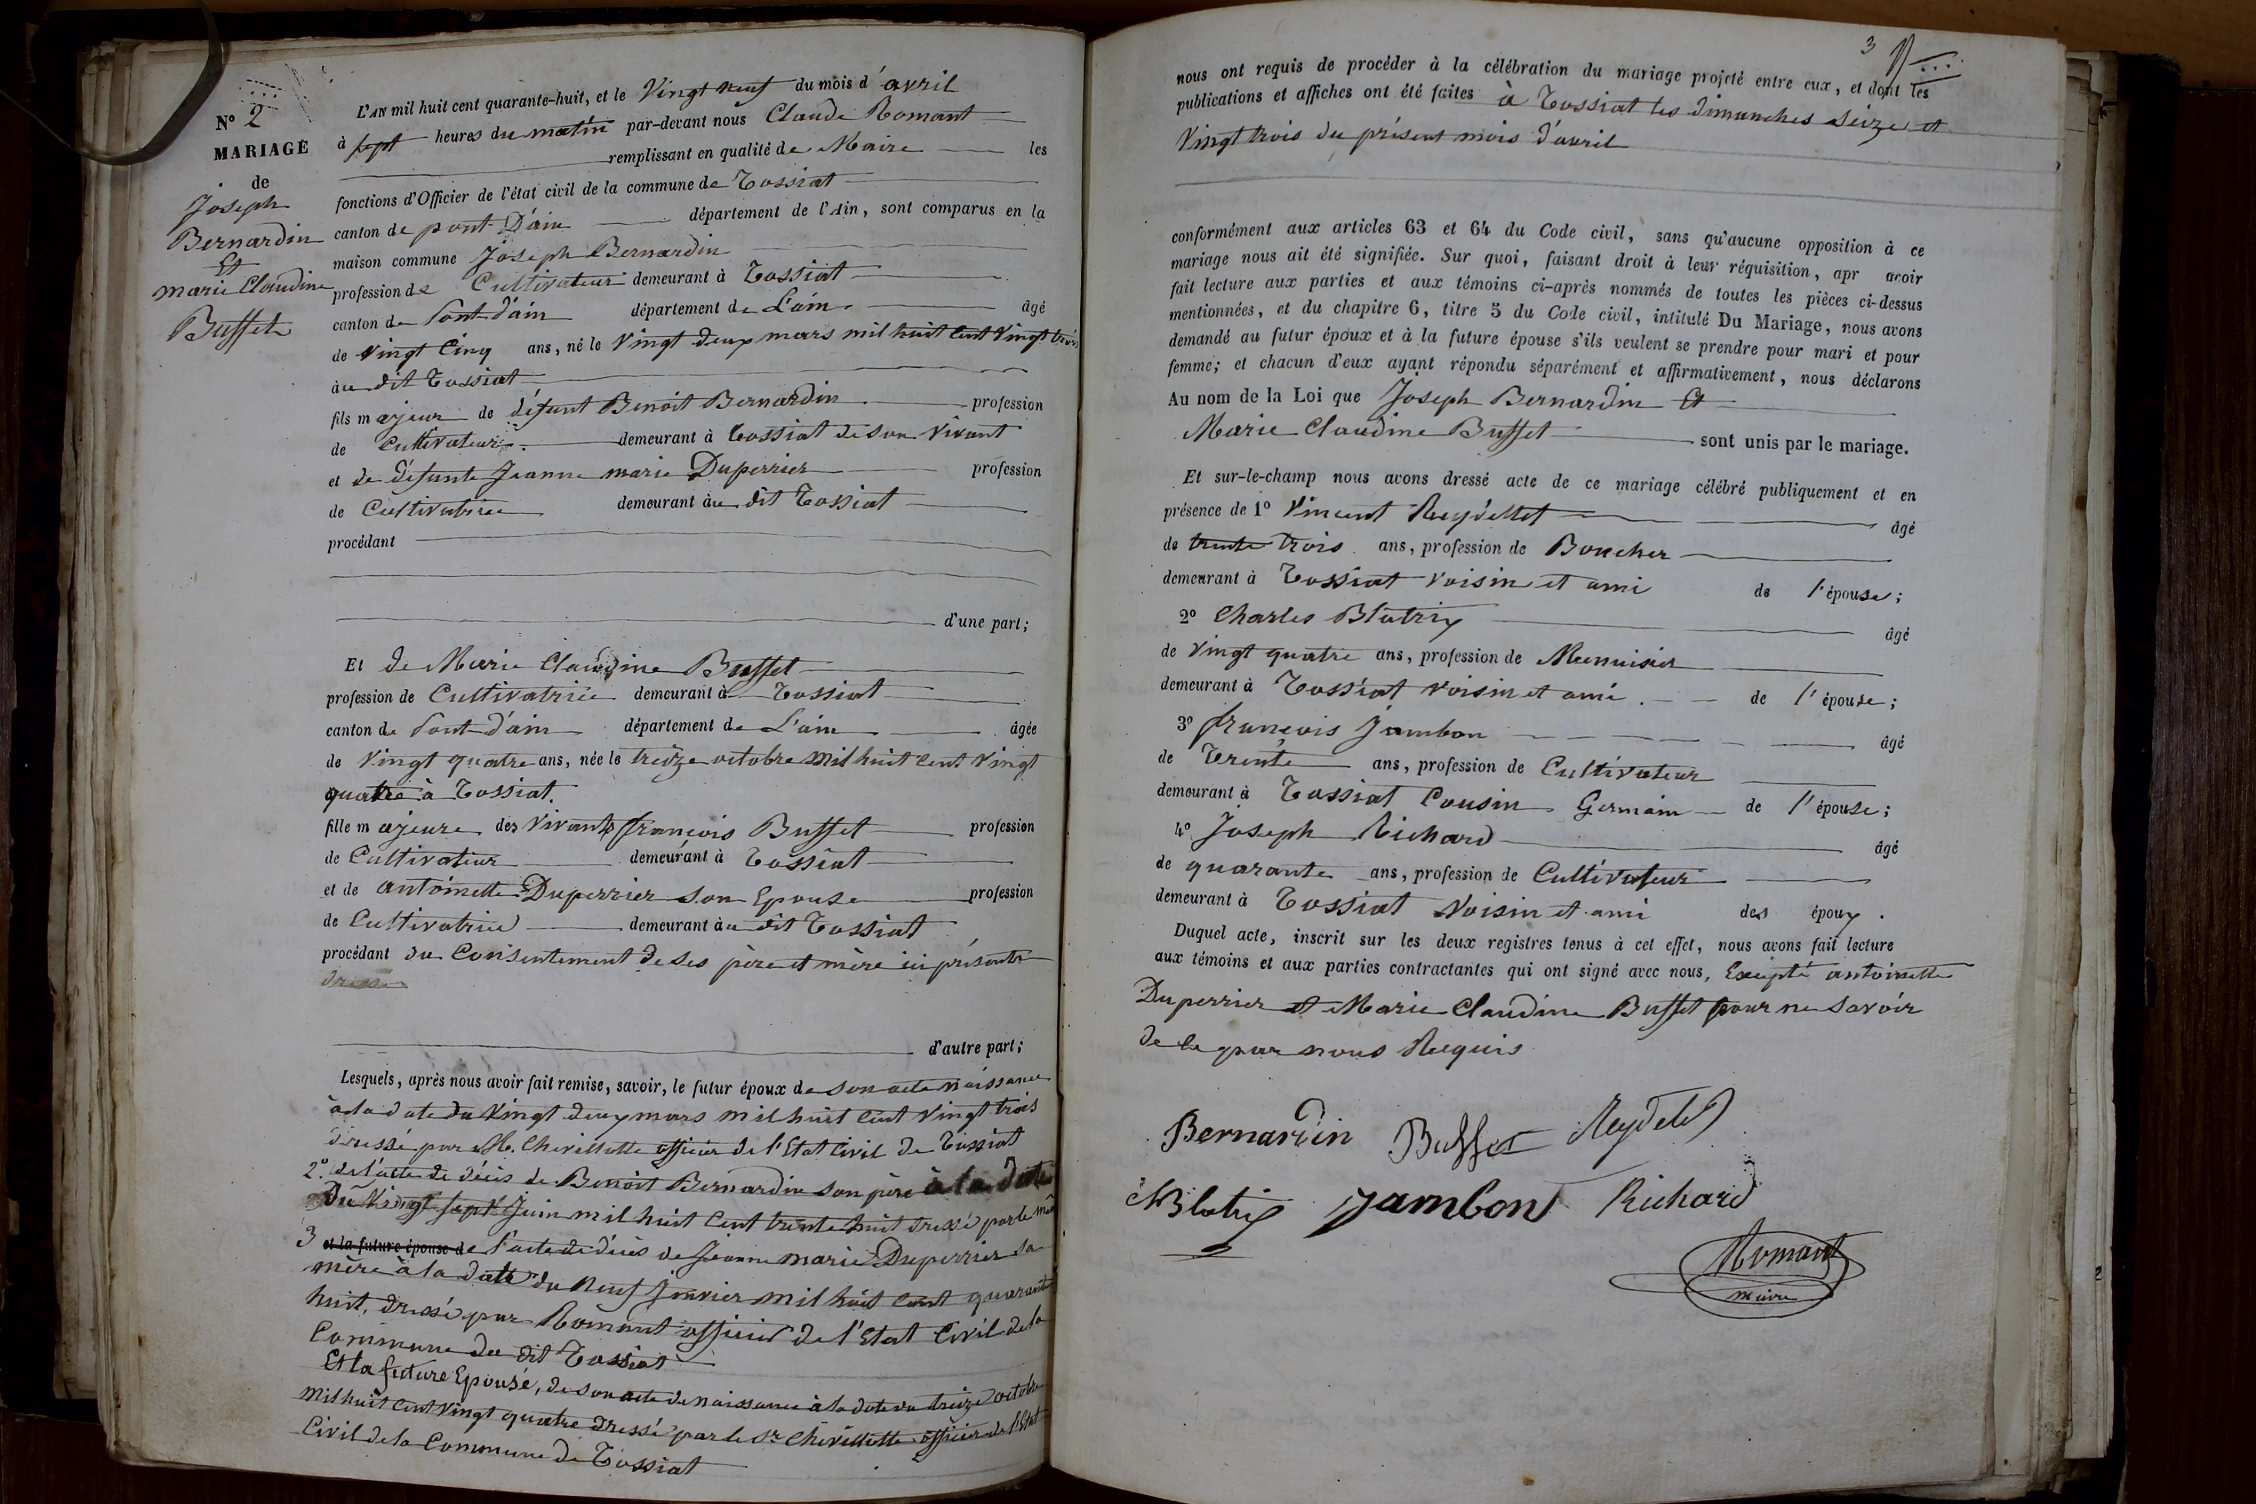 N° 2
MARIAGE
de
Joseph
Bernardin
Et
marie Claudine
Buffet
L'AN mil huit cent quarante-huit, et le Vingt neuf du mois d'avril
à sept heures du matin par-devant nous Claude Romant
remplissant en qualité de Maire les
fonctions d'Officier de l'état civil de la commune de Tossiat
canton de pont D'ain département de l'Ain, sont comparus en la
maison commune Joseph Bernardin
profession de Cultivateur demeurant à Tossiat
canton de Pont d'ain département de L'ain âgé
de Vingt Cinq ans, né le Vingt deux mars mil huit Cent Vingt trois
au dit Tossiat
fils majeur de défunt Benoit Bernardin profession
de Cultivateur demeurant à Tossiat de son Vivant
et de défunte Jeanne marie Duperrier profession
de Cultivatrice demeurant au dit Tossiat
procédant
d'une part;
Et de Marie Claudine Buffet
profession de Cultivatrice demeurant à Tossiat
canton de Pont d'ain département de L'ain âgée
de Vingt quatre ans, née le treize octobre Mil huit Cent Vingt
quatre à Tossiat.
fille majeure des Vivants françois Buffet profession
de Cultivateur demeurant à Tossiat
et de antoinette Duperrier son Epouse profession
de Cultivatrice demeurant au dit Tossiat
procédant du Consentement de ses père et mère ici présents
d'autre part;
Lesquels, après nous avoir fait remise, savoir, le futur époux de son acte naissance
à la date du Vingt deux mars mil huit Cent Vingt trois
dressé par M. Chevillotte officier de l'Etat Civil de Tossiat
2° de l'acte de décès de Benoit Bernardin son père à la date
Du Vingt sept Juin mil huit Cent trente huit dressé par le
3 et la future épouse de l'acte de décès de Jeanne marie Duperrier sa
mère à la date du Neuf Janvier mil huit Cent quarante
huit, dressé par Romant officier de l'Etat Civil de la
Commune du dit Tossiat
Et la future Epouse, de son acte de naissance à la date du treize octobre
Mil huit Cent Vingt quatre dressé par le Sr Chevillotte officier de l'Etat
Civil de la Commune de Tossiat
3
nous ont requis de procéder à la célébration du mariage projeté entre eux, et dont les
publications et affiches ont été faites à Tossiat les dimanches Seize et
Vingt trois du présent mois d'avril
conformément aux articles 63 et 64 du Code civil, sans qu'aucune opposition à ce
mariage nous ait été signifiée. Sur quoi, faisant droit à leur réquisition, apr avoir
fait lecture aux parties et aux témoins ci-après nommés de toutes les pièces ci-dessus
mentionnées, et du chapitre 6, titre 5 du Code civil, intitulé Du Mariage, nous avons
demandé au futur époux et à la future épouse s'ils veulent se prendre pour mari et pour
femme; et chacun d'eux ayant répondu séparément et affirmativement, nous déclarons
Au nom de la Loi que Joseph Bernardin Et
Marie Claudine Buffet sont unis par le mariage.
Et sur-le-champ nous avons dressé acte de ce mariage célébré publiquement et en
présence de 1° Vincent Reydellet âgé
de trente trois ans, profession de Boucher
demeurant à Tossiat Voisin et ami de l'épouse;
2° Charles Blatrix âgé
de Vingt quatre ans, profession de Menuisier
demeurant à Tossiat Voisin et ami de l'épouse;
3° françois Jambon âgé
de Trente ans, profession de Cultivateur
demeurant à Tossiat Cousin Germain de l'épouse;
4° Joseph Richard âgé
de quarante ans, profession de Cultivateur
demeurant à Tossiat Voisin et ami des époux.
Duquel acte, inscrit sur les deux registres tenus à cet effet, nous avons fait lecture
aux témoins et aux parties contractantes qui ont signé avec nous, Excepté antoinette
Duperrier et Marie Claudine Buffet pour ne Savoir
de ce par nous Requis
Bernardin Buffet Reydelet
Blatrix Jambon Richard
Romant
maire